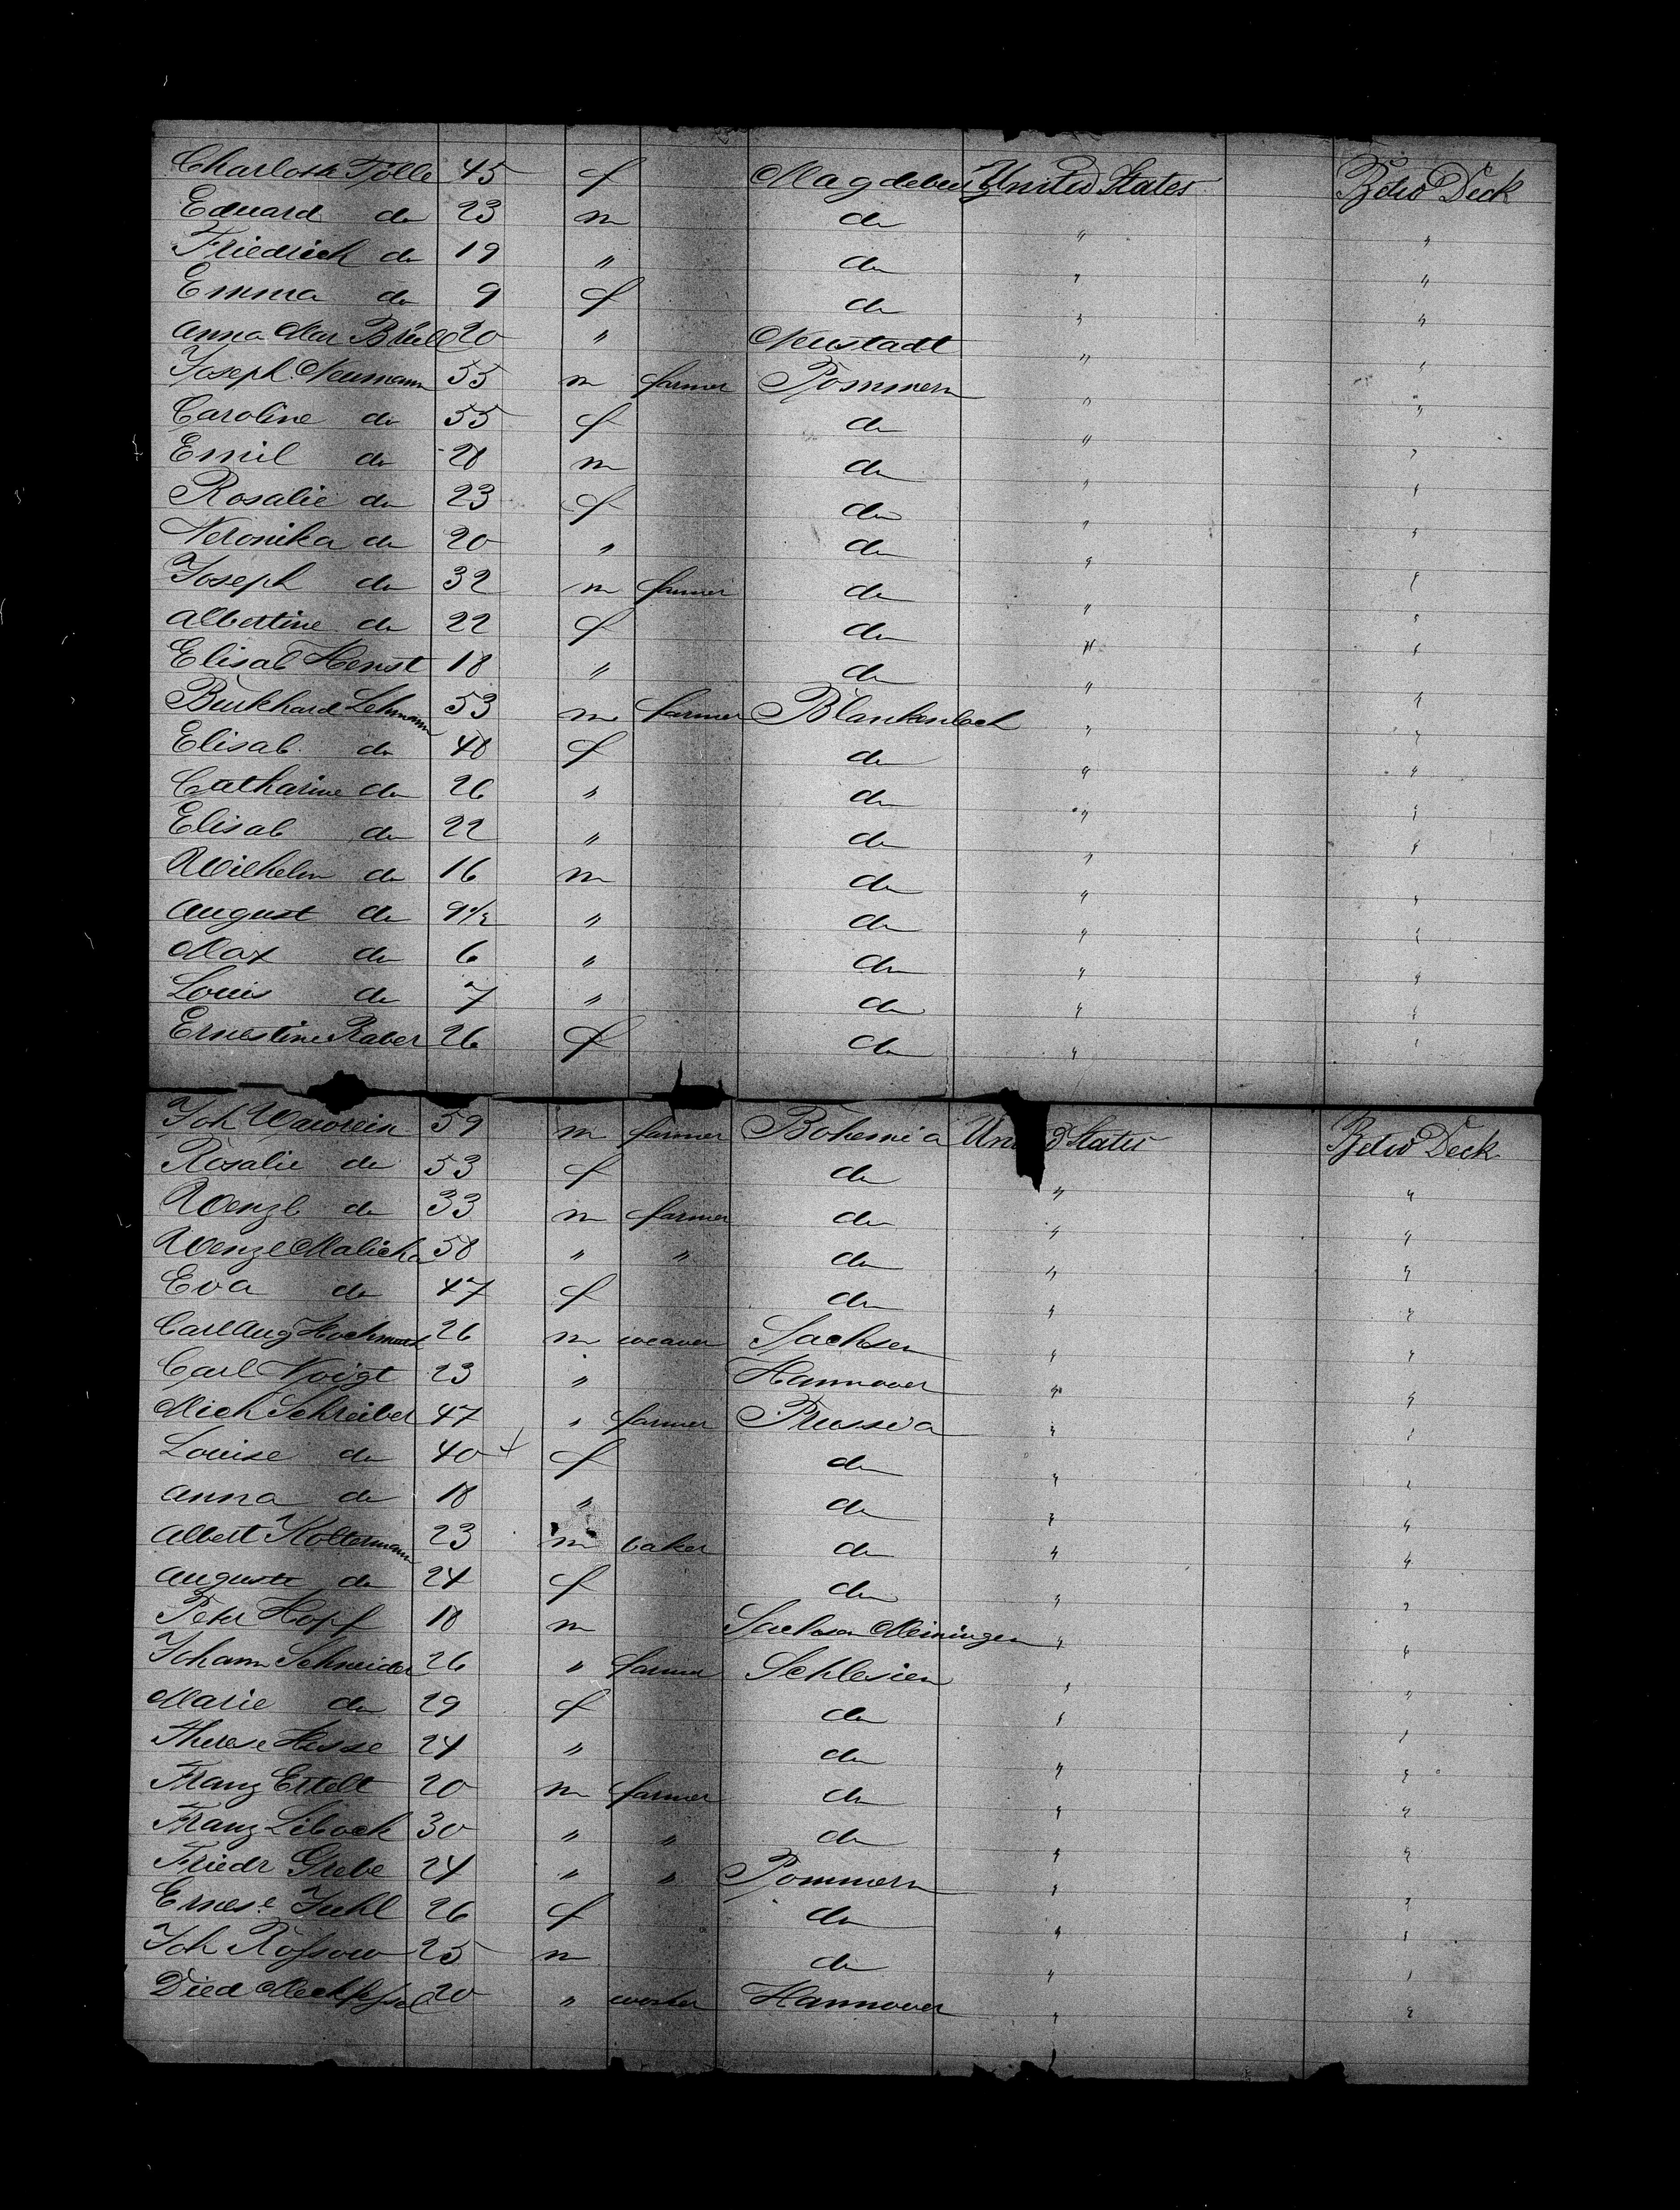 Charlotte Tölle 45 f Magdeburg United States Betw Deck
Eduard do 23 m do " "
Friedrich do 19 " do " "
Emma do 9 f do " "
Anna Mar Brüll 20 " Neustadt " "
Joseph Neumann 55 m farmer Pommern " "
Caroline do 55 f do " "
Emil do 28 m do " "
Rosalie do 23 f do " "
Veronika do 20 " do " "
Joseph do 32 m farmer do " "
Albertine do 22 f do " "
Elisab Henst 18 " do " "
Burkhard Lehmann 53 m farmer Blankenbach " "
Elisab. do 48 f do " "
Catharine do 26 " do " "
Elisab do 22 " do " "
Wilhelm do 16 m do " "
August do 9 1/2 " do " "
Max do 6 " do " "
Louis do 7 " do " "
Ernestine Raber 26 f do " "
Joh 59 m farmer Bohemia United States Betw Deck
Rosalie do 53 f do " "
Wenzl do 33 m farmer do " "
Wenzl Malicha 58 " " do " "
Eva do 47 f do " "
Carl Aug 26 m weaver Sachsen " "
Carl Voigt 23 " Hannover " "
Mich Schreiber 47 " farmer Prussia " "
Louise do 40 + f do " "
Anna do 18 " do " "
Albert Koltermann 23 m baker do " "
Auguste do 24 f do " "
Peter Hopf 18 m Sachsen Meiningen " "
Johann Schneider 26 " farmer Schlesien " "
Marie do 29 f do " "
Therese Hesse 24 " do " "
Franz Ertelt 20 m farmer do " "
Franz Libock 30 " " do " "
Friedr Grebe 24 " " Pommern " "
Ernese Juhl 26 f do " "
Joh Roßow 25 m do " "
Died 20 " worker Hannover " "